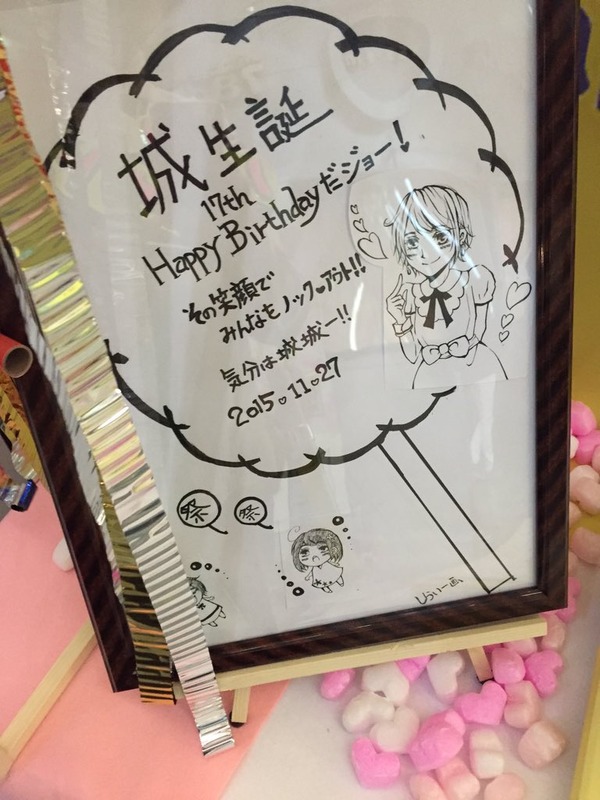 城生誕
17th
Happy Birthdayだジョー!
その笑顔で
みんなもノック♥アウト!!
気分は城城一!!
2015♡11♡27
祭 祭
ひらいー画